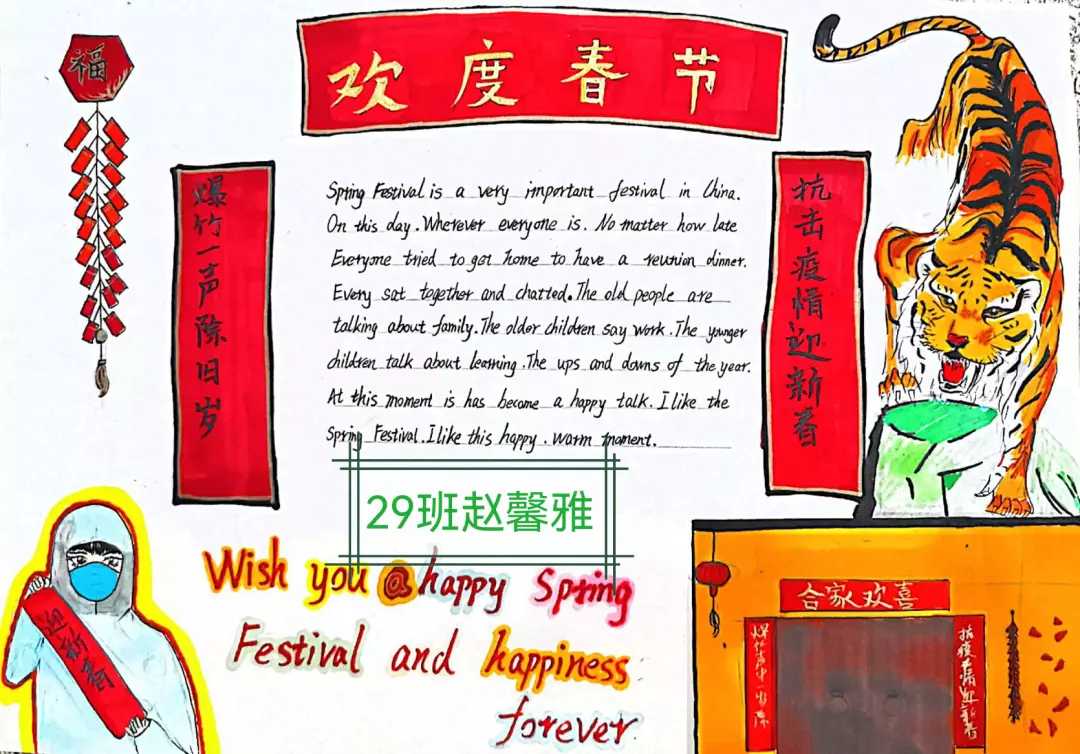 福
欢度春节
爆竹一声除旧岁
Spring Festival is a very important festival in China.
On this day. Wherever everyone is. No matter how late
Everyone tried to get home to have a reunion dinner.
Every sat together and chatted. The old people are
talking about family. The older children say work. The younger
children talk about learning. The ups and downs of the year.
At this moment is has become a happy talk. I like the
Spring Festival. I like this happy. warm moment.
抗击疫情迎新春
29班赵馨雅
Wish you a happy Spring
Festival and happiness
forever
迎新春
合家欢喜